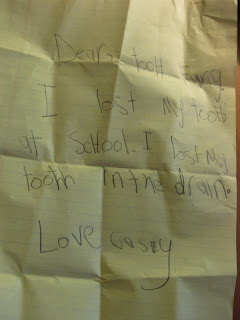 Dear tooth Fariy.
I lost my tooth
at School. I lost my
tooth in the drain.
Love casey